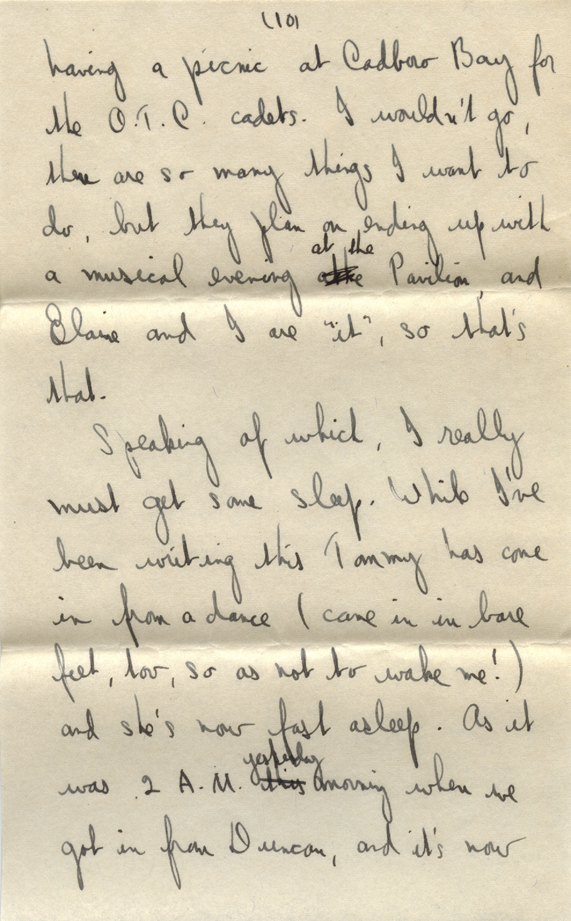 (10)
having a picnic at Cadboro Bay for
the O.T.C. cadets. I wouldn't go,
there are so many things I want to
do, but they plan on ending up with
at the
a musical evening Pavilion, and
Elaine and I are "it", so that's
that.
Speaking of which, I really
must get some sleep. While I've
been writing this Tommy has come
in from a dance (came in in bare
feet, too, so as not to wake me!)
and she's now fast asleep. As it
yesterday
was 2 A.M. this morning when we
got in from Duncan, and it's now